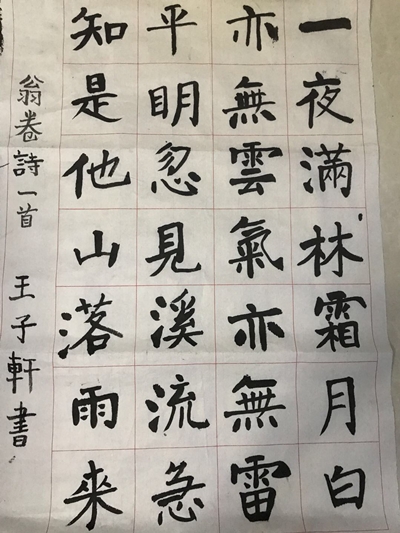 一夜滿林霜月白
亦無雲氣亦無雷
平明忽見溪流急
知是他山落雨來
翁卷詩一首 王子軒書